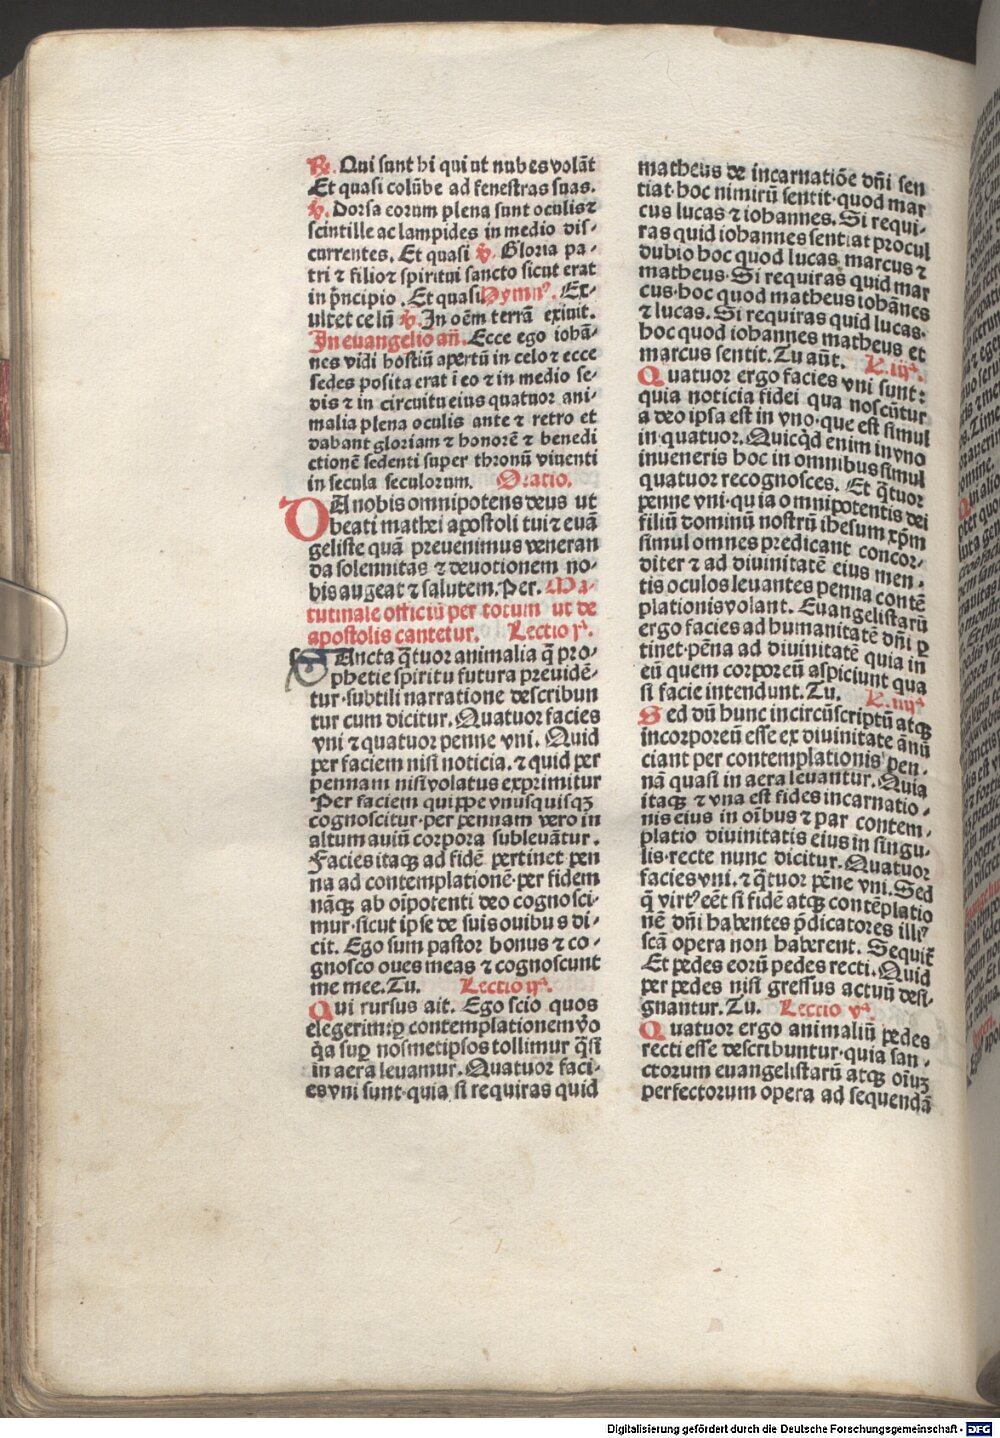 ℟. Qui sunt hi qui ut nubes volāt
Et quasi colūbe ad fenestras suas.
℣. Dorsa eorum plena sunt oculis ⁊
scintille ac lampides in medio dis-
currentes. Et quasi ℣. Gloria pa-
tri ⁊ filio ⁊ spiritui sancto sicut erat
in p̄ncipio. Et quasi Hymnꝰ. Ex-
ultet celū ℣. In oēm terrā exiuit.
In euangelio añ. Ecce ego iohā-
nes vidi hostiū apertū in celo ⁊ ecce
sedes posita erat i eo ⁊ in medio se-
dis ⁊ in circuitu eius quatuor ani-
malia plena oculis ante ⁊ retro et
dabant gloriam ⁊ honorē ⁊ benedi
ctionē sedenti super thronū viuenti
in secula seculorum. Oratio.
DA nobis omnipotens deus ut
beati mathei apostoli tui ⁊ euā
geliste quā preuenimus veneran
da solennitas ⁊ deuotionem no-
bis augeat ⁊ salutem. Per. Ma-
tutinale officiū per totum ut de
apostolis cantetur. Lectio jᵃ.
SAncta q̄tuor animalia q̄ pro-
phetie spiritu futura preuidē-
tur·subtili narratione describun
tur cum dicitur. Quatuor facies
vni ⁊ quatuor penne vni. Quid
per faciem nisi noticia. ⁊ quid per
pennam nisi volatus exprimitur
Per faciem quippe vnusquisqꝫ
cognoscitur·per pennam vero in
altum auiū corpora subleuātur.
Facies itaqꝫ ad fidē pertinet pen
na ad contemplationē·per fidem
nāqꝫ ab oīpotenti deo cognosci-
mur·sicut ipse de suis ouibus di-
cit. Ego sum pastor bonus ⁊ co-
gnosco oues meas ⁊ cognoscunt
me mee. Tu. Lectio ijᵃ.
Qui rursus ait. Ego scio quos
elegerim ꝑ contemplationem v̄o
q̄a suꝑ nosmetipsos tollimur q̄si
in aera leuamur. Quatuor faci-
es vni sunt·quia si requiras quid
matheus de incarnatiōe dñi sen
tiat·hoc nimirū sentit·quod mar
cus lucas ⁊ iohannes. Si requi-
ras quid iohannes sentiat procul
dubio hoc quod lucas marcus ⁊
matheus. Si requiras quid mar
cus·hoc quod matheus iohānes
⁊ lucas. Si requiras quid lucas·
hoc quod iohannes matheus et
marcus sentit. Tu aūt. L. iijᵃ.
Quatuor ergo facies vni sunt:
quia noticia fidei qua noscūtur
a deo ipsa est in vno·que est simul
in quatuor. Quicq̄d enim in vno
inueneris hoc in omnibus simul
quatuor recognosces. Et q̄tuor
penne vni·quia omnipotentis dei
filiū dominū nostrū ihesum xp̄m
simul omnes predicant concor-
diter ⁊ ad diuinitatē eius men-
tis oculos leuantes penna contē
plationis volant. Euangelistarū
ergo facies ad humanitatē dñi ꝑ
tinet·pēna ad diuinitatē quia in
eū quem corporeū aspiciunt qua
si facie intendunt. Tu. L. iiijᵃ
Sed dū hunc incircūscriptū atqꝫ
incorporeū esse ex diuinitate ānū
ciant per contemplationis pen-
nā quasi in aera leuantur. Quia
itaqꝫ ⁊ vna est fides incarnatio-
nis eius in oībus ⁊ par contem-
platio diuinitatis eius in singu-
lis·recte nunc dicitur. Quatuor
facies vni. ⁊ q̄tuor pēne vni. Sed
q̄ virtꝰ eēt si fidē atqꝫ contēplatio
nē dñi habentes p̄dicatores illiꝰ
scā opera non haberent. Sequit̄
Et pedes eorū pedes recti. Quid
per pedes nisi gressus actuū desi-
gnantur. Tu. Lectio vᵃ.
Quatuor ergo animaliū pedes
recti esse describuntur·quia san-
ctorum euangelistarū atqꝫ oīuꝫ
perfectorum opera ad sequendā
Digitalisierung gefördert durch die Deutsche Forschungsgemeinschaft - DFG